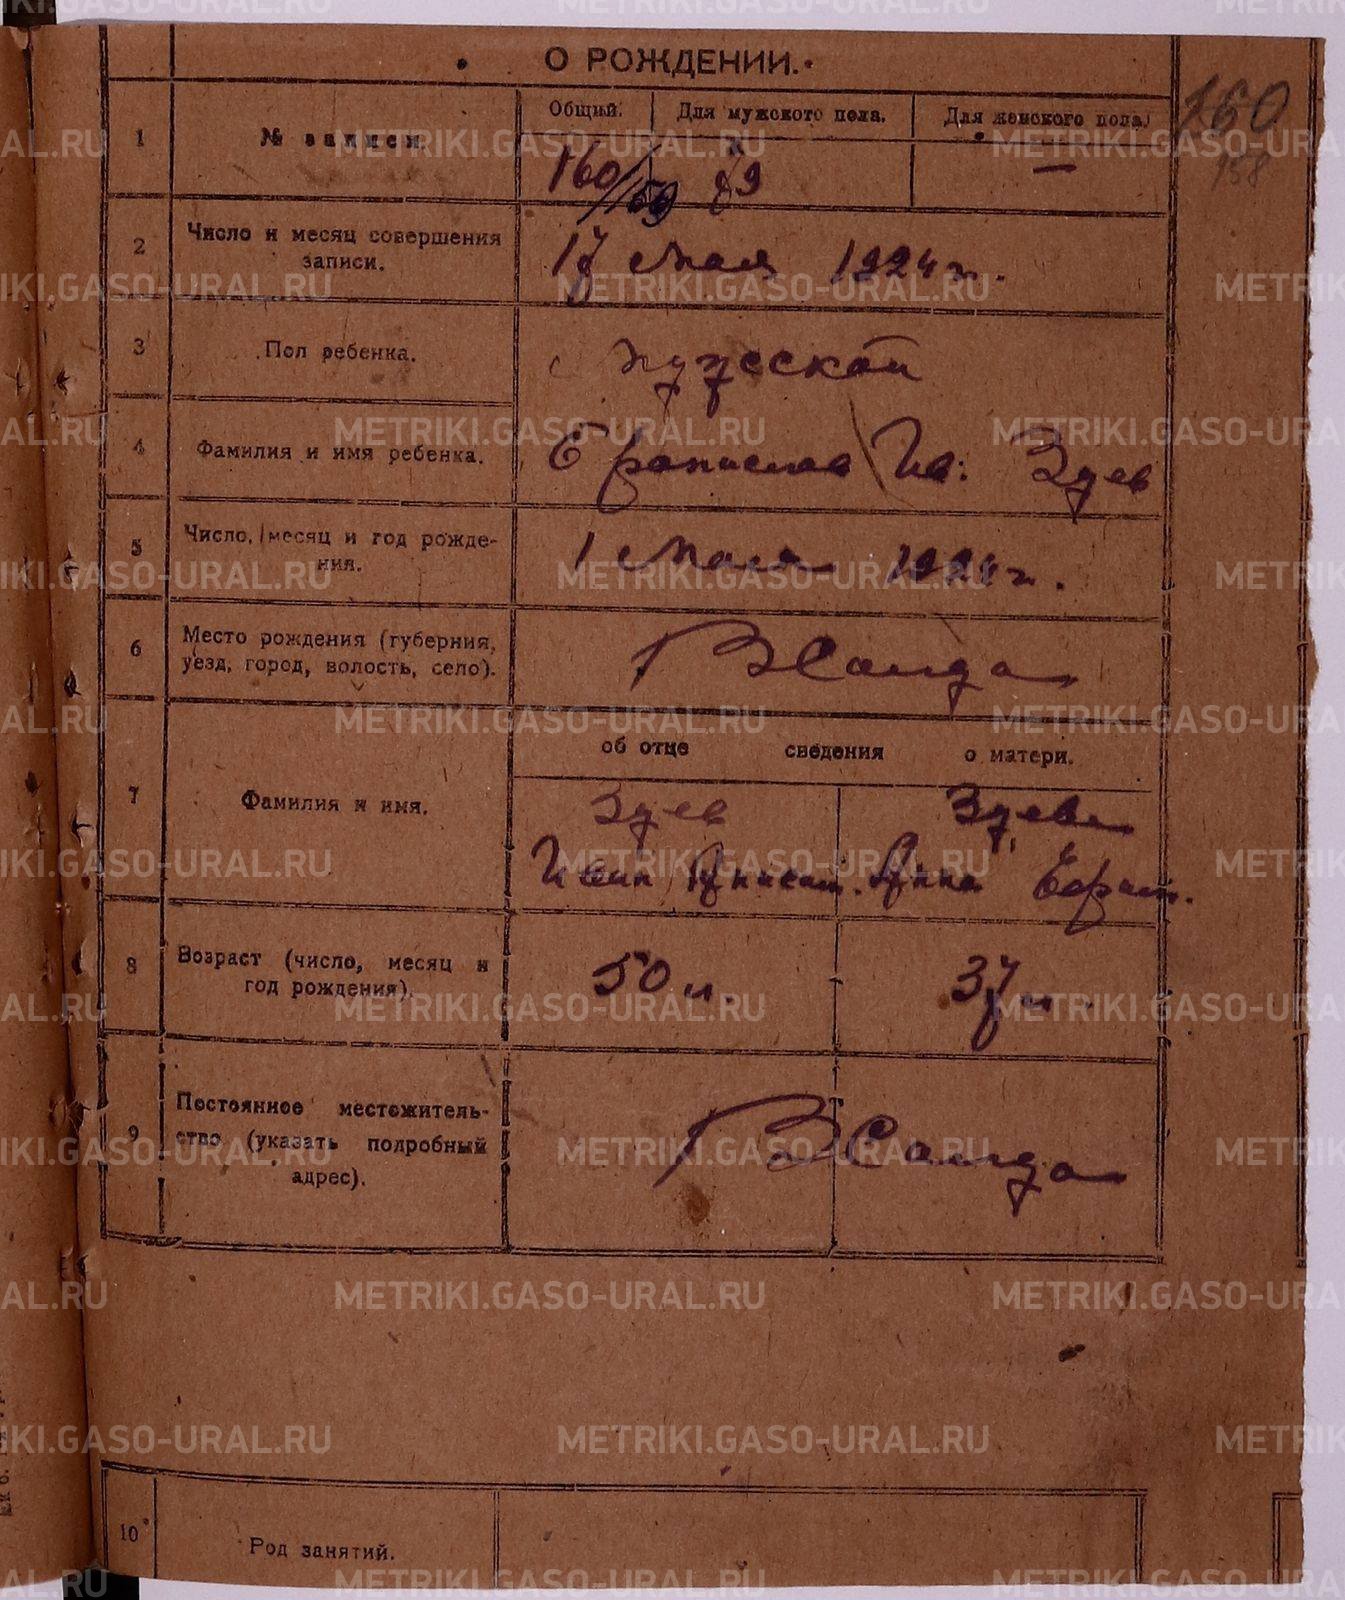 О РОЖДЕНИИ.
1
№ записи
Общий.
Для мужского пола.
Для женского пола.
160
158
160/159
79
—
2
Число и месяц совершения
записи.
17 Мая 1924 г.
3
Пол ребенка.
Мужеской
4
Фамилия и имя ребенка.
Ив. Зуев
5
Число, месяц и год рожде-
ния.
1 Мая 1924 г.
6
Место рождения (губерния,
уезд, город, волость, село).
ВСалда
об отце сведения о матери.
7
Фамилия и имя.
Зуев
Иван
Зуева
Анна
8
Возраст (число, месяц и
год рождения).
50 л.
37 л.
9
Постоянное местожитель-
ство (указать подробный
адрес).
ВСалда
10
Род занятий.
METRIKI.GASO-URAL.RU